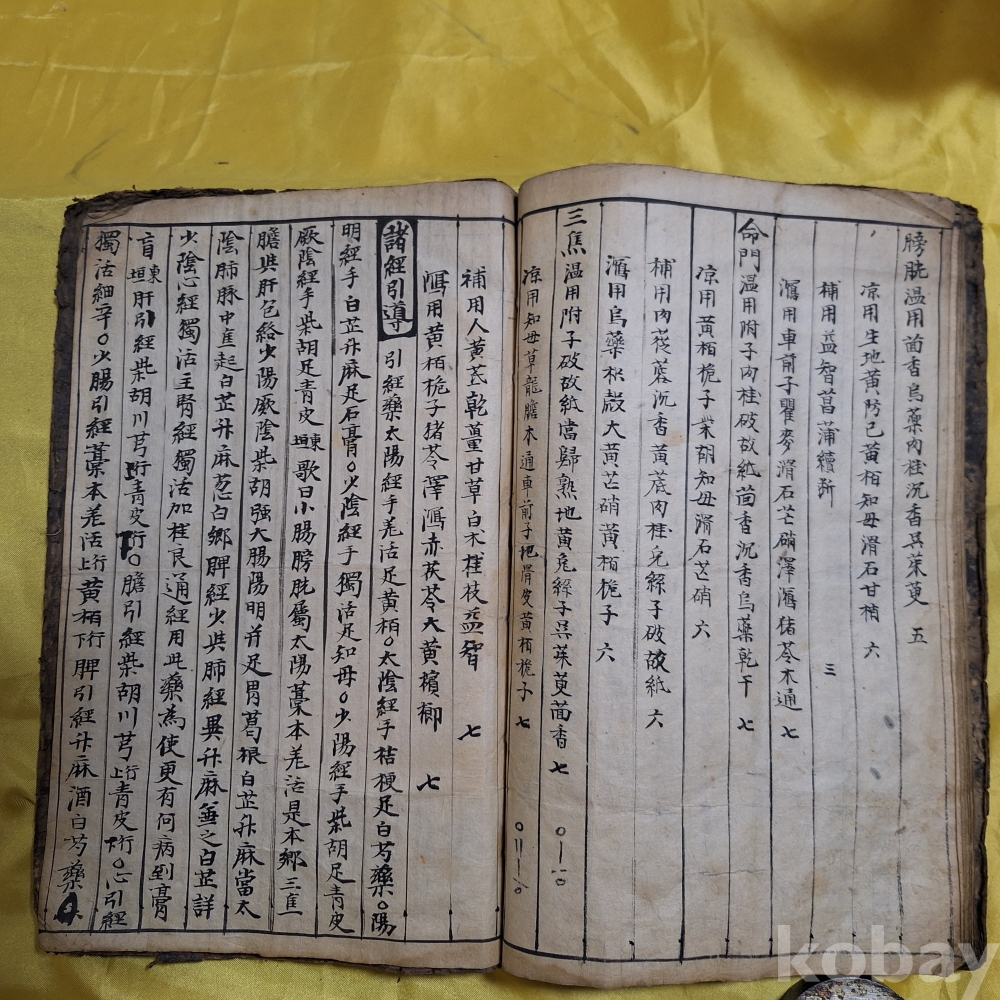 膀胱溫用茴香烏藥肉桂沉香吳茱萸 五
凉用生地黃防己黃栢知母滑石甘梢 六
補用益智菖蒲續斷 三
瀉用車前子瞿麥滑石芒硝澤瀉猪苓木通 七
命門溫用附子肉桂破故紙茴香沉香烏藥乾干 七
凉用黃栢梔子柴胡知母滑石芒硝 六
補用肉蓯蓉沉香黃茋肉桂兎絲子破故紙 六
瀉用烏藥枳殼大黃芒硝黃栢梔子 六
三焦溫用附子破故紙當歸熟地黃兎絲子吳茱萸茴香 七
凉用知母草龍膽木通車前子地骨皮黃栢梔子 七
補用人黃芪乾薑甘草白朮桂枝益智 七
瀉用黃栢梔子猪苓澤瀉赤茯苓大黃檳榔 七
諸經引導 引經藥太陽經手羌活足黃栢○太陰經手桔梗足白芍藥○陽
明經手白芷升麻足石膏○少陰經手獨活足知母○少陽經手柴胡足青皮
厥陰經手柴胡足青皮 東垣歌曰小腸膀胱屬太陽藁本羌活是本鄉三焦
膽與肝包絡少陽厥陰柴胡强大腸陽明幷足胃葛根白芷升麻當太
陰肺脉中焦起白芷升麻葱白鄉脾經少與肺經異升麻兼之白芷詳
少陰心經獨活主腎經獨活加桂良通經用此藥爲使更有何病到膏
肓 東垣肝引經柴胡川芎上行青皮下行○膽引經柴胡川芎上行青皮下行○心引經
獨活細辛○小腸引經藁本羌活上行黃栢下行脾引經升麻酒白芍藥